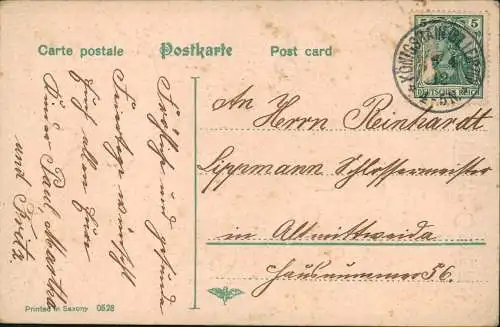 Carte postale Postkarte Post card
5 5
DEUTSCHES REICH
An Herrn Reinhardt
Lippmann Schlossermeister
in Altmittweida
Hausnummer 56.
Fröhliche und gesunde
Feiertage wünscht
Euch allen Euer
Paul, Martha
und Fritz.
Printed in Saxony 0528